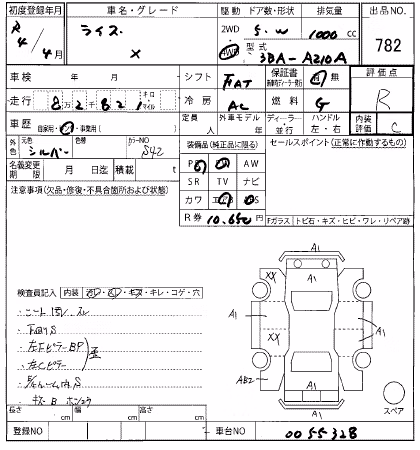 初度登録年月 車名・グレード 駆動 ドア数・形状 排気量 出品NO.
R 4/4月 ライズ X 2WD 4WD 5.W 1000cc 782
型式 3BA-A210A
車検 年 月 シフト FAT 保証書 有 無 評価点
走行 8万2千821 キロ マイル 冷房 AC 燃料 G R
車歴 自家用・レンタ・事業用( ) 定員 人 外車モデル 年 ディーラー・並行 ハンドル 左・右 内装評価 C
外色 元色 シルバー 色替 カラーNO S42 装備品(純正品に限る) セールスポイント(正常に動作するもの)
名義変更期限 月 日迄 積載 t PS PW AW
注意事項(欠品・修復・不具合箇所および状態) SR TV ナビ
カワ エアB ABS
R券 10,650
Fガラス トビ石・キズ・ヒビ・ワレ・リペア跡
A1
XX XX
A1 A1 A1
XX
AB2
A1
検査員記入 内装 キレ・コゲ・穴
シート スレ
下廻りS
左Fピラー BP 歪
左Cピラー
S
キズ B
長さ cm 幅 cm 高さ cm スペア
登録NO 車台NO 0055328